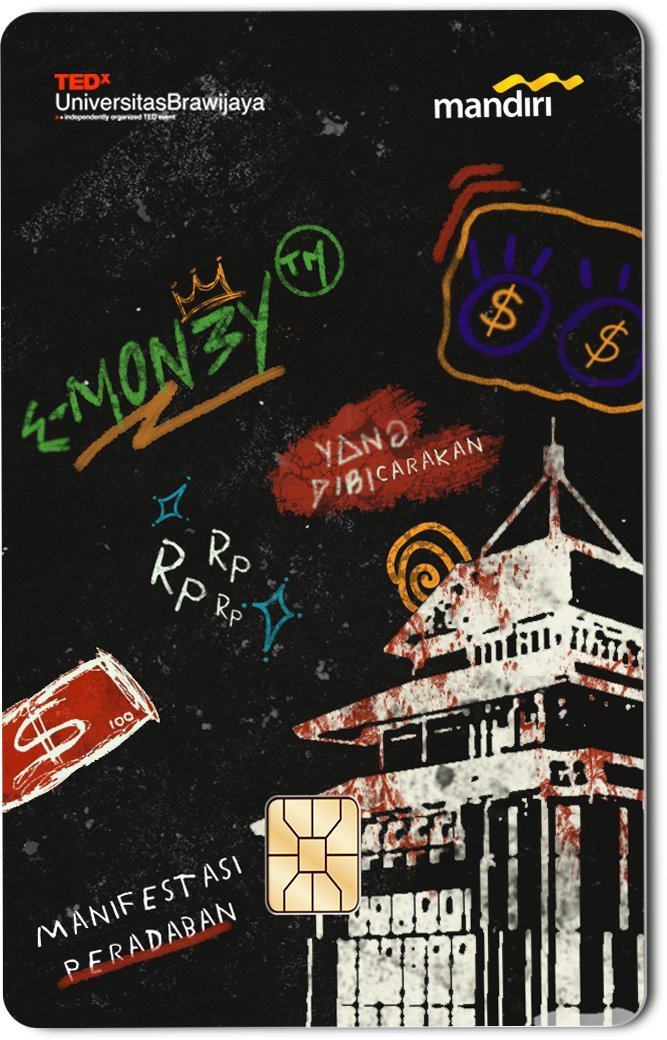 TEDx
UniversitasBrawijaya
x = independently organized TED event
mandiri
TM
E-MON3Y
$
$
YANG
DIBICARAKAN
Rp
Rp
Rp
$ 100
MANIFESTASI
PERADABAN